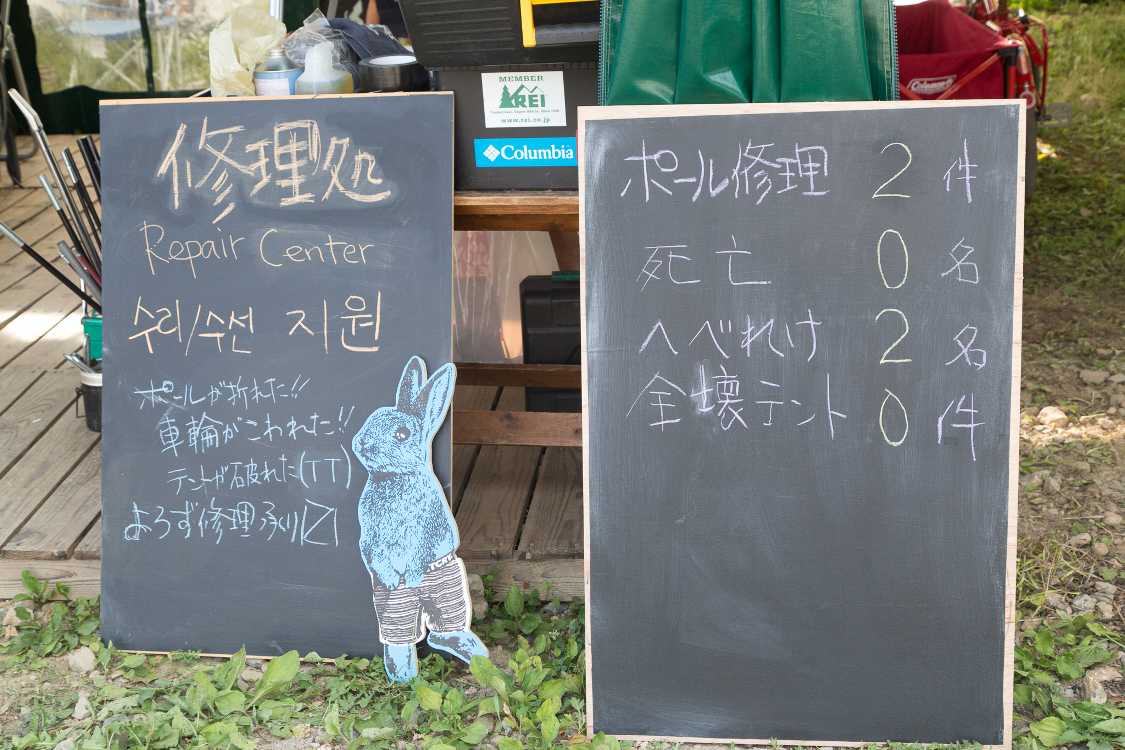 修理処
Repair Center
수리/수선 지원
ポールが折れた!!
車輪がこわれた!!
テントが破れた(TT)
よろず修理承り〼
MEMBER
REI
www.rei.co.jp
Columbia
Coleman
ポール修理 2 件
死亡 0 名
へべれけ 2 名
全壊テント 0 件